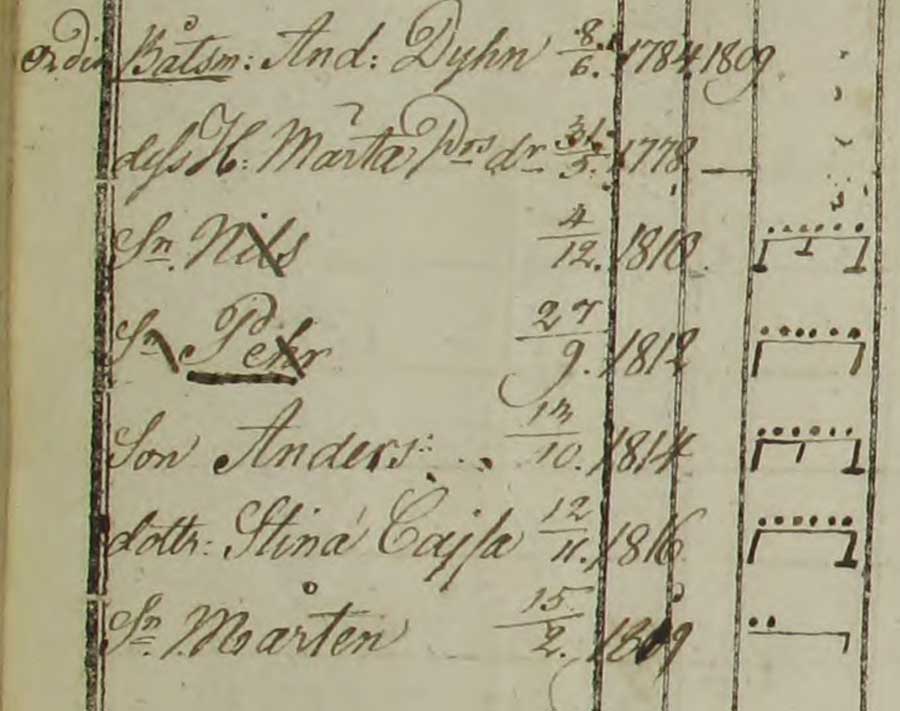 Ordin Båtsm: And: Dyhn 8/6. 1784 1809
dess H: Märta Prs dr 31/5. 1778 —
Sn. Nils 4/12. 1810.
Sn Pehr 27/9. 1812
Son Anders: 13/10. 1814
dottr: Stina Cajsa 12/11. 1816
Sn. Mårten 15/2. 1819